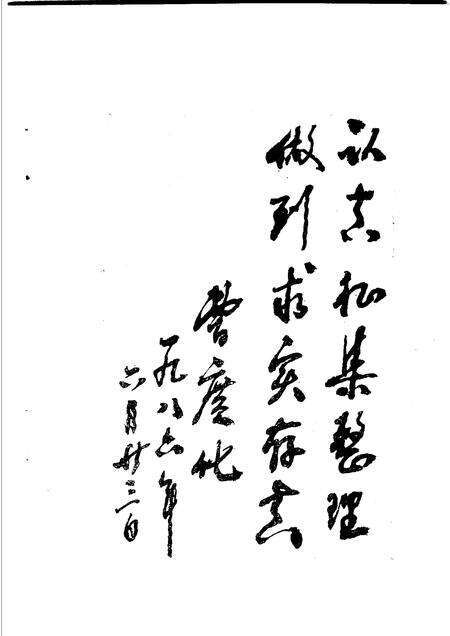 认真征集整理
做到求实存真
曹廣化
一九八六年
六月廿三日